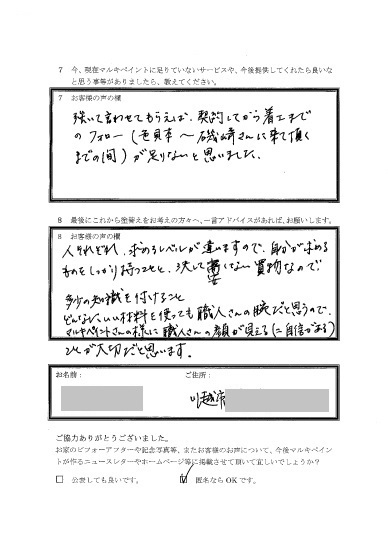 7 今、現在マルキペイントに足りていないサービスや、今後提供してくれたら良いな
と思う事等がありましたら、教えてください。
7 お客様の声の欄
強いて言わせてもらえば、契約してから着工まで
のフォロー(色見本〜磯崎さんに来て頂く
までの間)が足りないと思いました。
8 最後にこれから塗替えをお考えの方々へ、一言アドバイスがあれば、お願いします。
8 お客様の声の欄
人それぞれ、求めるレベルが違いますので、自分が求める
ものをしっかり持つことと、決して安くない買物なので、
多少の知識を付けること
どんなにいい材料を使っても職人さんの腕だと思うので、
マルキペイントさんの様に職人さんの顔が見える(=自信がある)
ことが大切だと思います。
お名前:
ご住所:
川越市
ご協力ありがとうございました。
お家のビフォーアフターや記念写真等、またお客様のお声について、今後マルキペイン
トが作るニュースレターやホームページ等に掲載させて頂いて宜しいでしょうか?
□ 公表しても良いです。
☑ 匿名ならOKです。